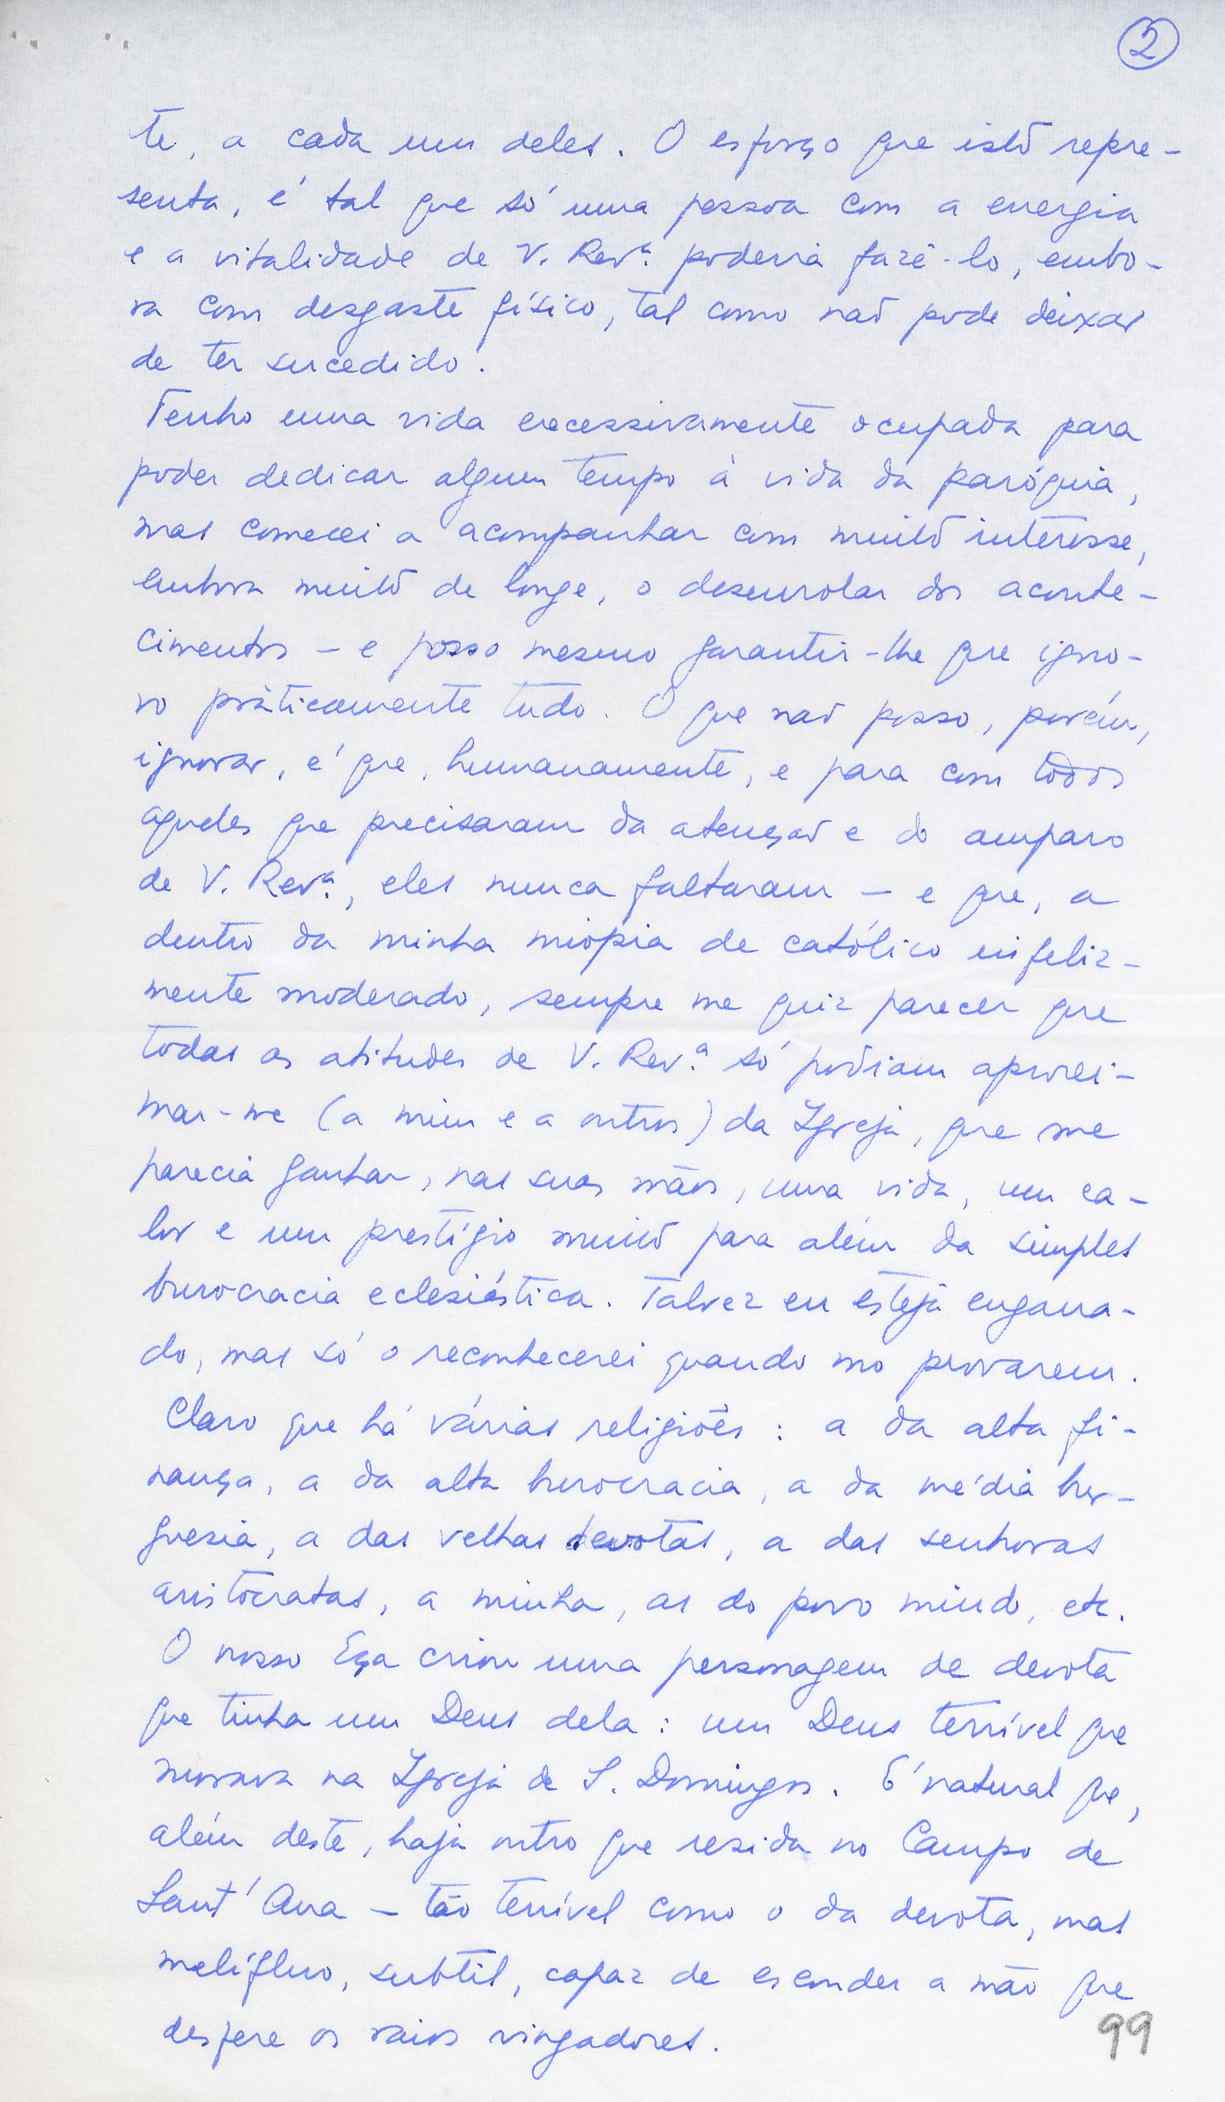 2
te, a cada um deles. O esforço que isto repre-
senta, é tal que só uma pessoa com a energia
e a vitalidade de V. Revª. poderia fazê-lo, embo-
ra com desgaste físico, tal como não pode deixar
de ter sucedido.
Tenho uma vida excessivamente ocupada para
poder dedicar algum tempo à vida da paróquia,
mas comecei a acompanhar com muito interesse,
embora muito de longe, o desenrolar dos aconte-
cimentos – e posso mesmo garantir-lhe que igno-
ro pràticamente tudo. O que não posso, porém,
ignorar, é que, humanamente, e para com todos
aqueles que precisaram da atenção e do amparo
de V. Revª., eles nunca faltaram – e que, a
dentro da minha miopia de católico infeliz-
mente moderado, sempre me quiz parecer que
todas as atitudes de V. Rev.ª só podiam aproxi-
mar-me (a mim e a outros) da Igreja, que me
parecia ganhar, nas suas mãos, uma vida, um ca-
lor e um prestígio muito para além da simples
burocracia eclesiástica. Talvez eu esteja engana-
do, mas só o reconhecerei quando mo provarem.
Claro que há várias religiões: a da alta fi-
nança, a da alta burocracia, a da média bur-
guesia, a das velhas devotas, a das senhoras
aristocratas, a minha, as do povo miudo, etc.
O nosso Eça criou uma personagem de devota
que tinha um Deus dela: um Deus terrível que
morava na Igreja de S. Domingos. É natural que,
além deste, haja outro que resida no Campo de
Sant'Ana – tão terrível como o da devota, mas
melífluo, subtil, capaz de esconder a mão que
desfere os raios vingadores.
99